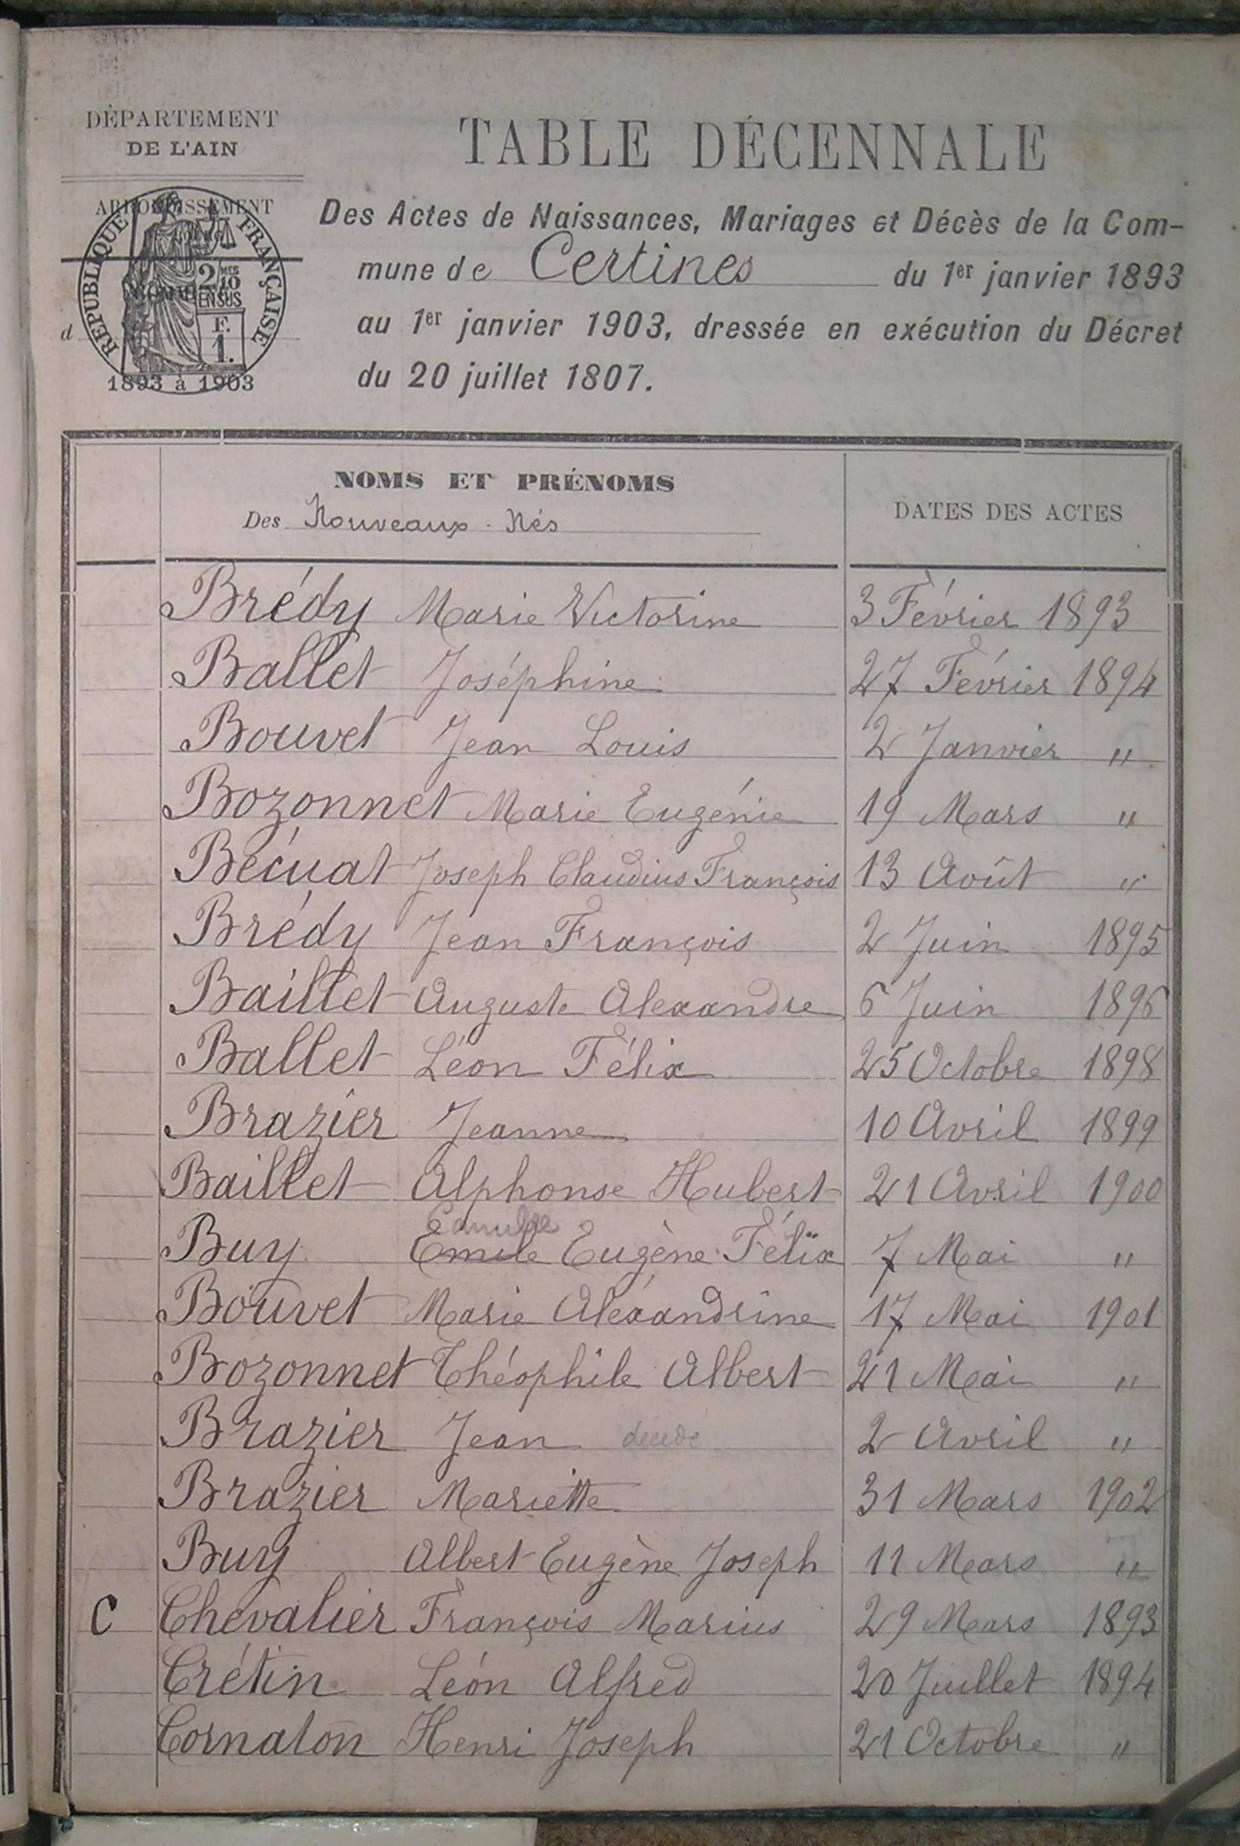 DÉPARTEMENT
DE L'AIN
ARRONDISSEMENT
RÉPUBLIQUE FRANÇAISE
2 MES
10
EN SUS
F.
1.
d
1893 à 1903
TABLE DÉCENNALE
Des Actes de Naissances, Mariages et Décès de la Com-
mune de Certines du 1er janvier 1893
au 1er janvier 1903, dressée en exécution du Décret
du 20 juillet 1807.
NOMS ET PRÉNOMS
Des Nouveaux-Nés
DATES DES ACTES
Brédy Marie Victorine 3 Février 1893
Ballet Joséphine 27 Février 1894
Bouvet Jean Louis 2 Janvier "
Bozonnet Marie Eugénie 19 Mars "
Bécuat Joseph Claudius François 13 Août "
Brédy Jean François 2 Juin 1895
Baillet Auguste Alexandre 6 Juin 1896
Ballet Léon Félix 25 Octobre 1898
Brazier Jeanne 10 Avril 1899
Baillet Alphonse Hubert 21 Avril 1900
Camille
Buy Emile Eugène Félix 7 Mai "
Bouvet Marie Aléxandrine 17 Mai 1901
Bozonnet Théophile Albert 21 Mai "
Brazier Jean décédé 2 Avril "
Brazier Mariette 31 Mars 1902
Buy Albert Eugène Joseph 11 Mars "
C Chevalier François Marius 29 Mars 1893
Crétin Léon Alfred 20 Juillet 1894
Cornaton Henri Joseph 21 Octobre "